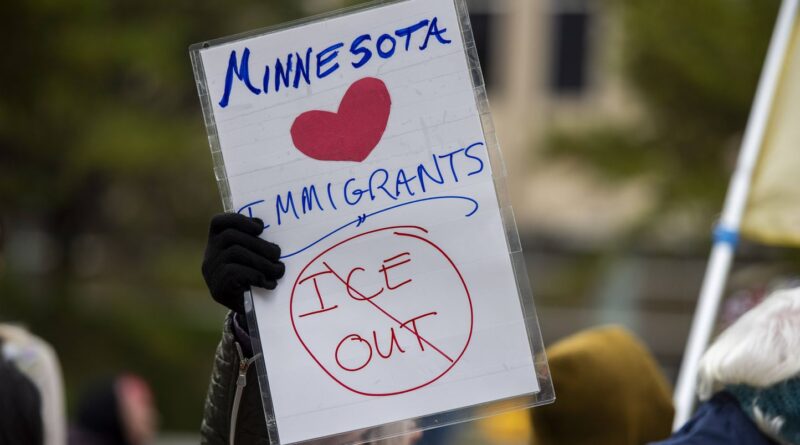 MINNESOTA
IMMIGRANTS
ICE
OUT